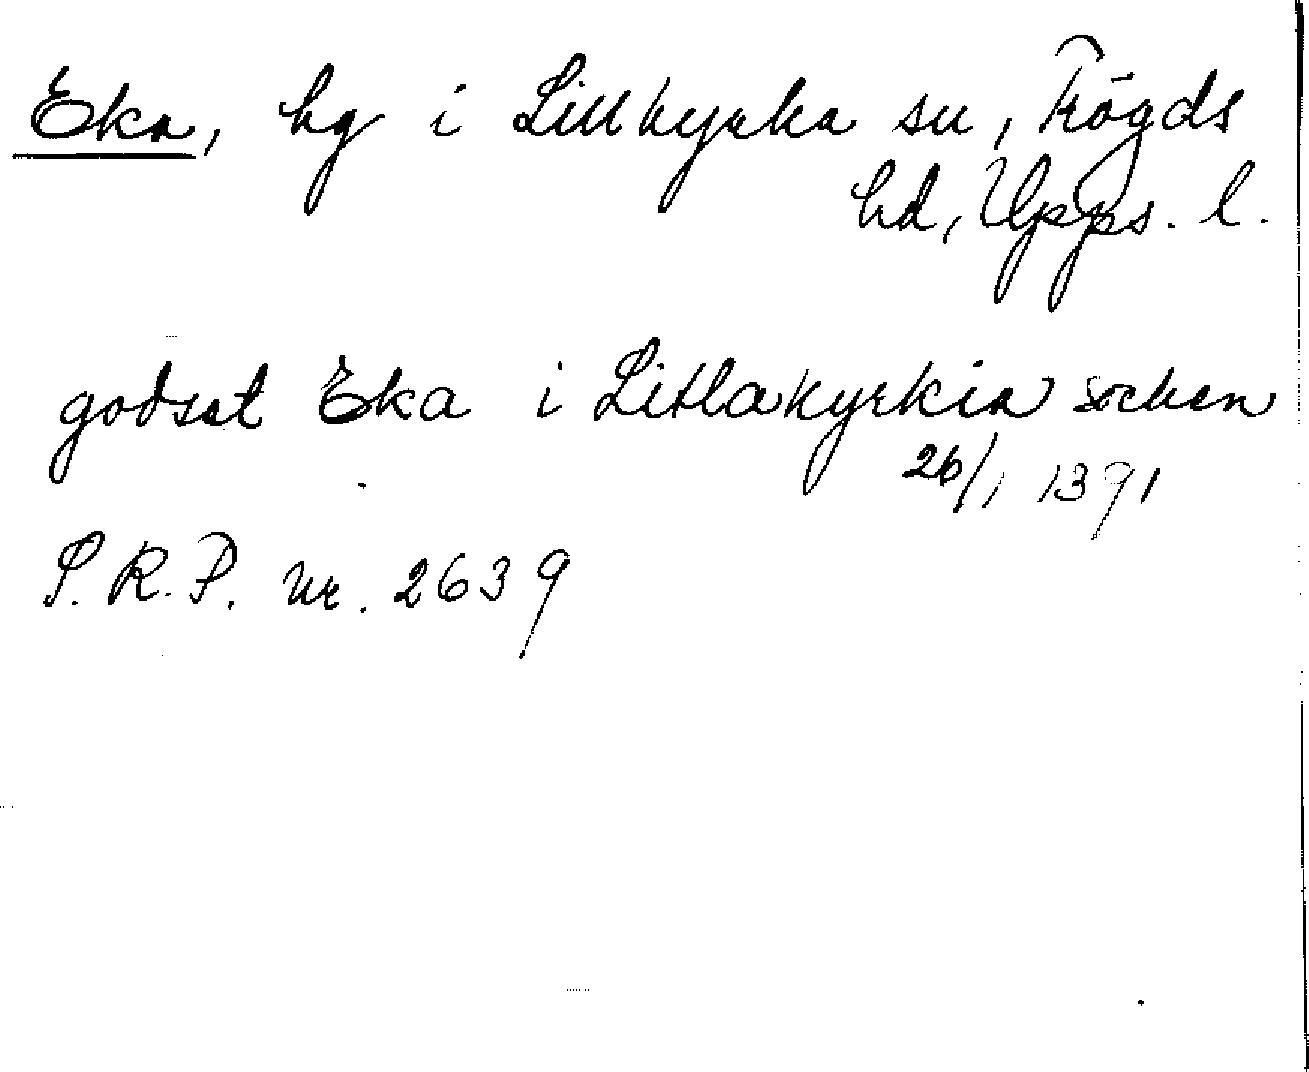 Eka, hg i Lillkyrka sn, Trögds
hd, Upps. l.
godset Eka i Litlakyrkia socken
26/1 1391
S.R.P. nr. 2639